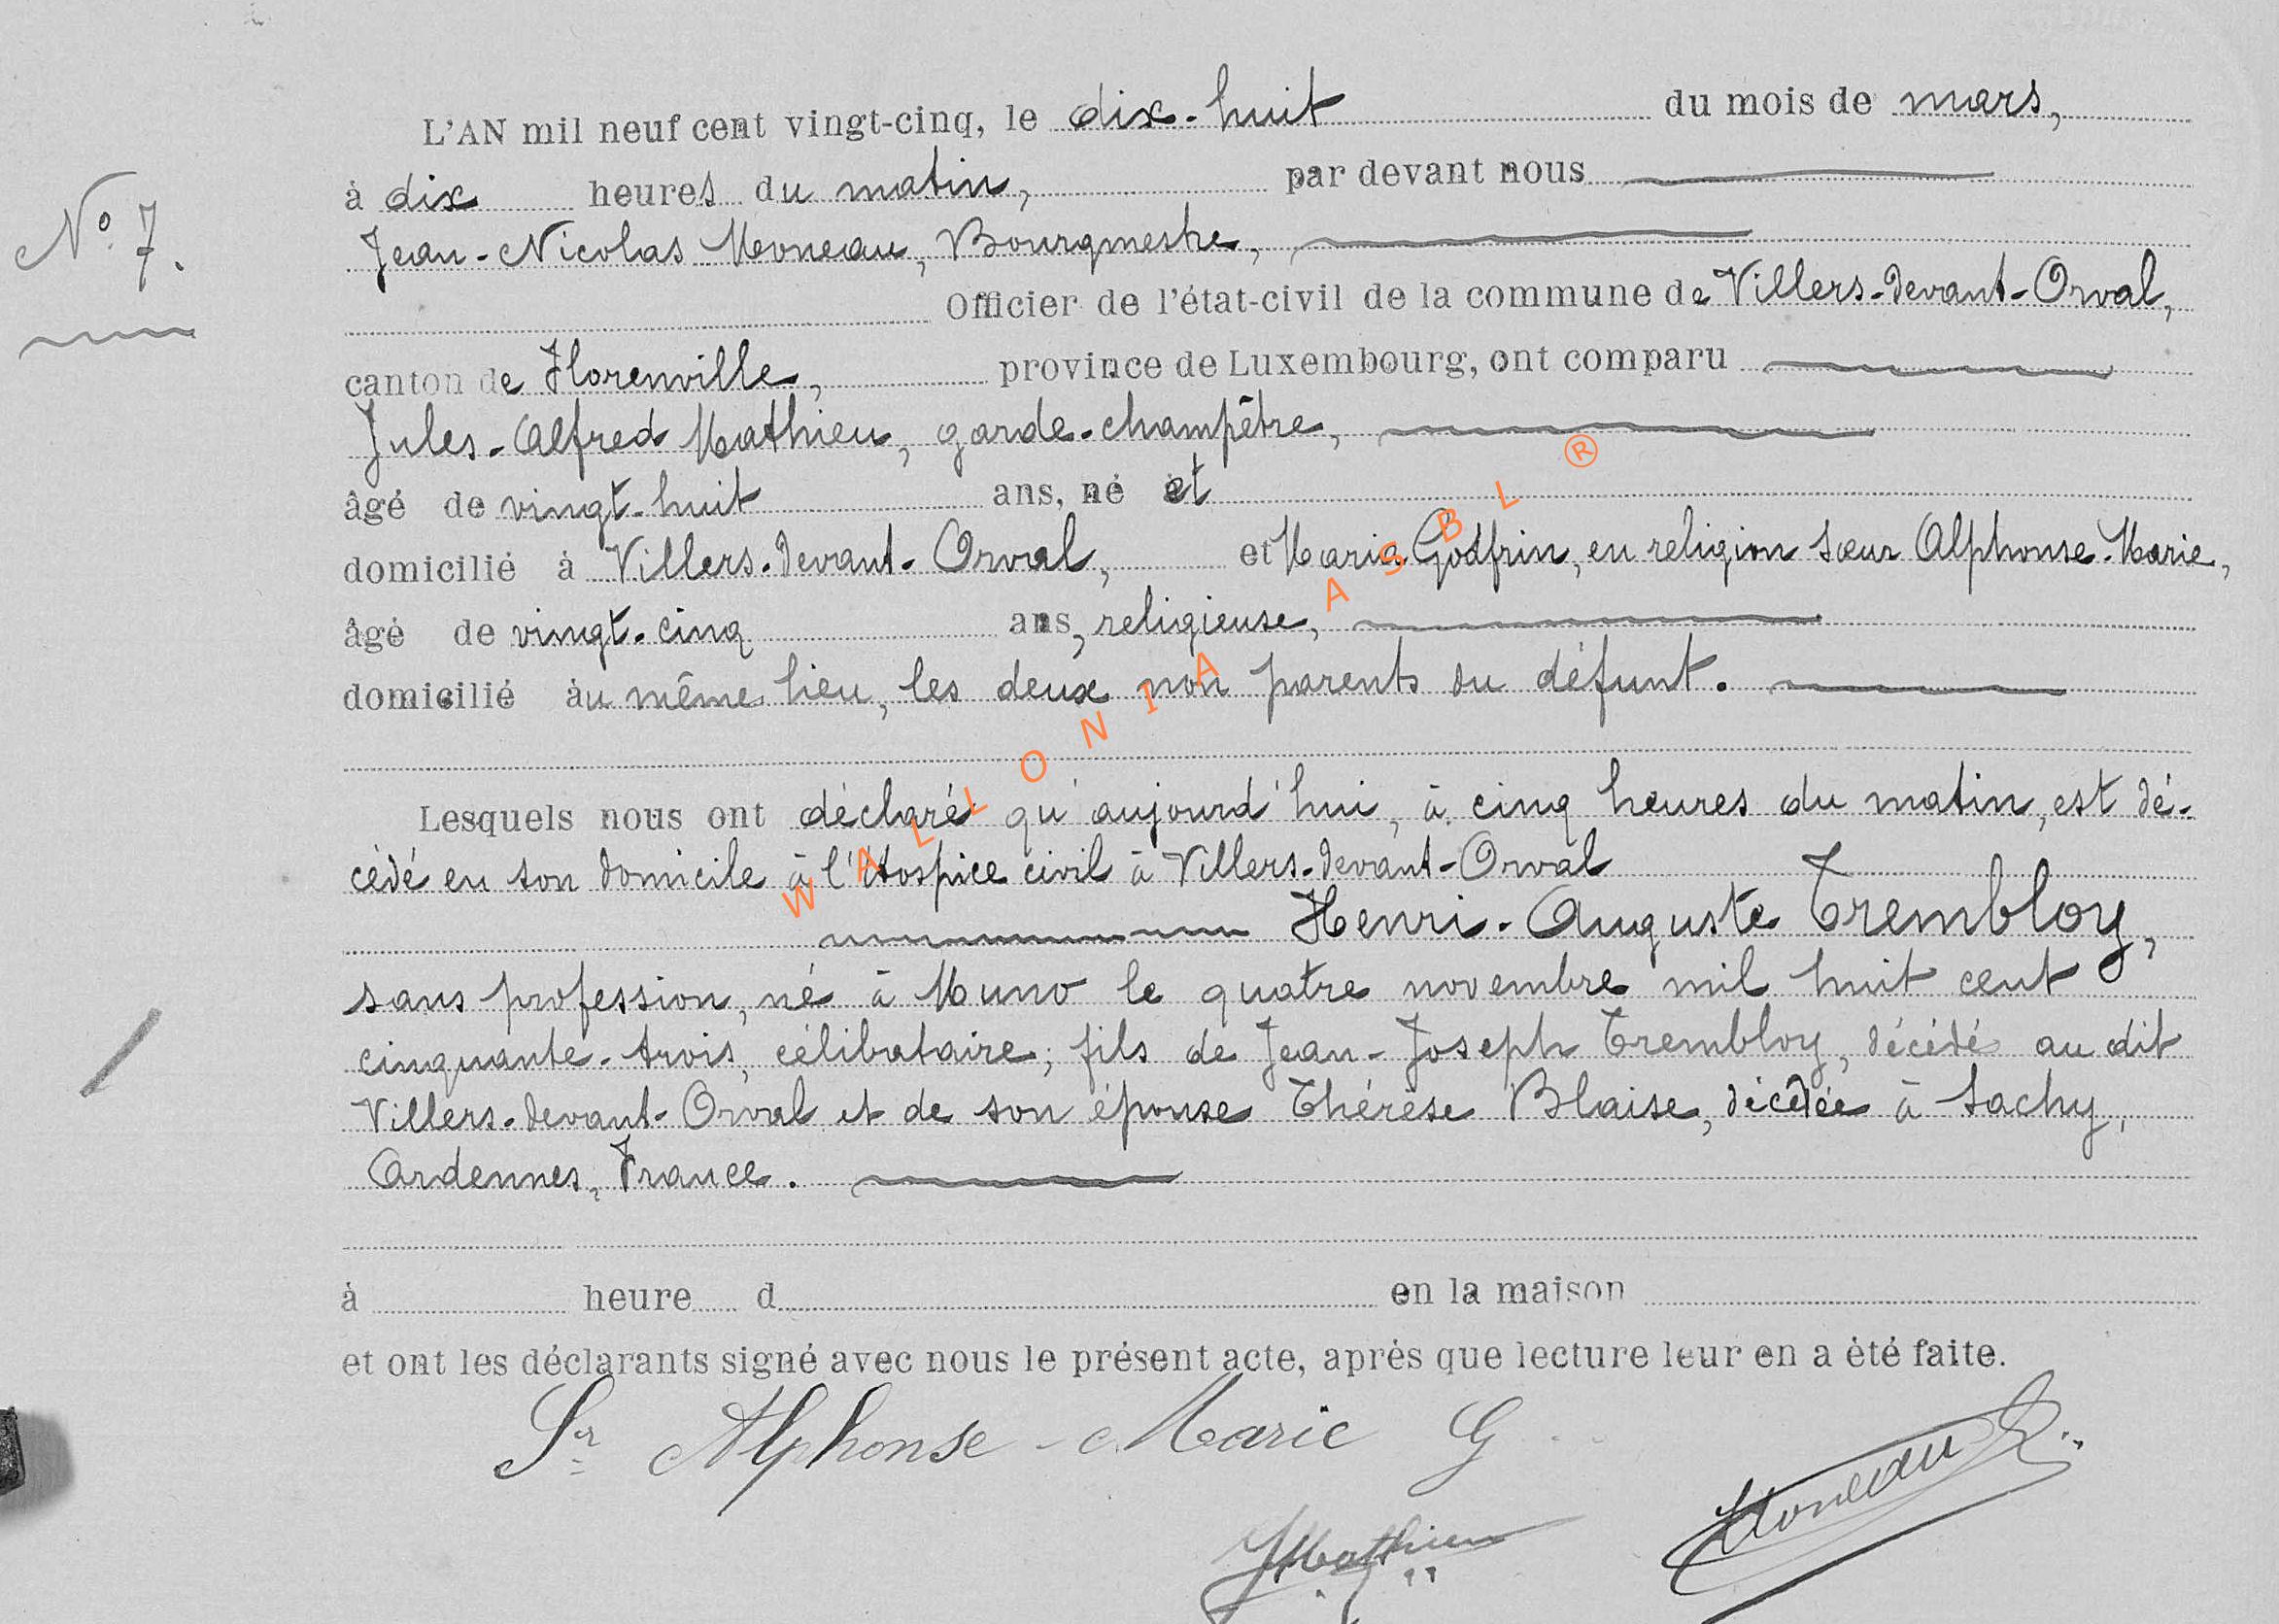 L'AN mil neuf cent vingt-cinq, le dix-huit du mois de mars,
à dix heures du matin, par devant nous
N° 7.
Jean-Nicolas Moneau, Bourgmestre,
Officier de l'état-civil de la commune de Villers-devant-Orval,
canton de Florenville, province de Luxembourg, ont comparu
Jules-Alfred Mathieu, garde-champêtre,
âgé de vingt-huit ans, né et
domicilié à Villers-devant-Orval, et Maria Godfrin, en religion sœur Alphonse-Marie,
âgé de vingt-cinq ans, religieuse,
domicilié au même lieu, les deux non parents du défunt.
Lesquels nous ont déclaré qu'aujourd'hui, à cinq heures du matin, est dé-
cédé en son domicile à l'Hospice civil à Villers-devant-Orval
Henri-Auguste Trembloy,
sans profession, né à Muno le quatre novembre mil huit cent
cinquante-trois, célibataire; fils de Jean-Joseph Trembloy, décédé au dit
Villers-devant-Orval et de son épouse Thérèse Blaise, décédée à Sachy,
Ardennes, France.
à heure d en la maison
et ont les déclarants signé avec nous le présent acte, après que lecture leur en a été faite.
Sr Alphonse-Marie G
JMathieu
Moneau
WALLONIA ASBL ®